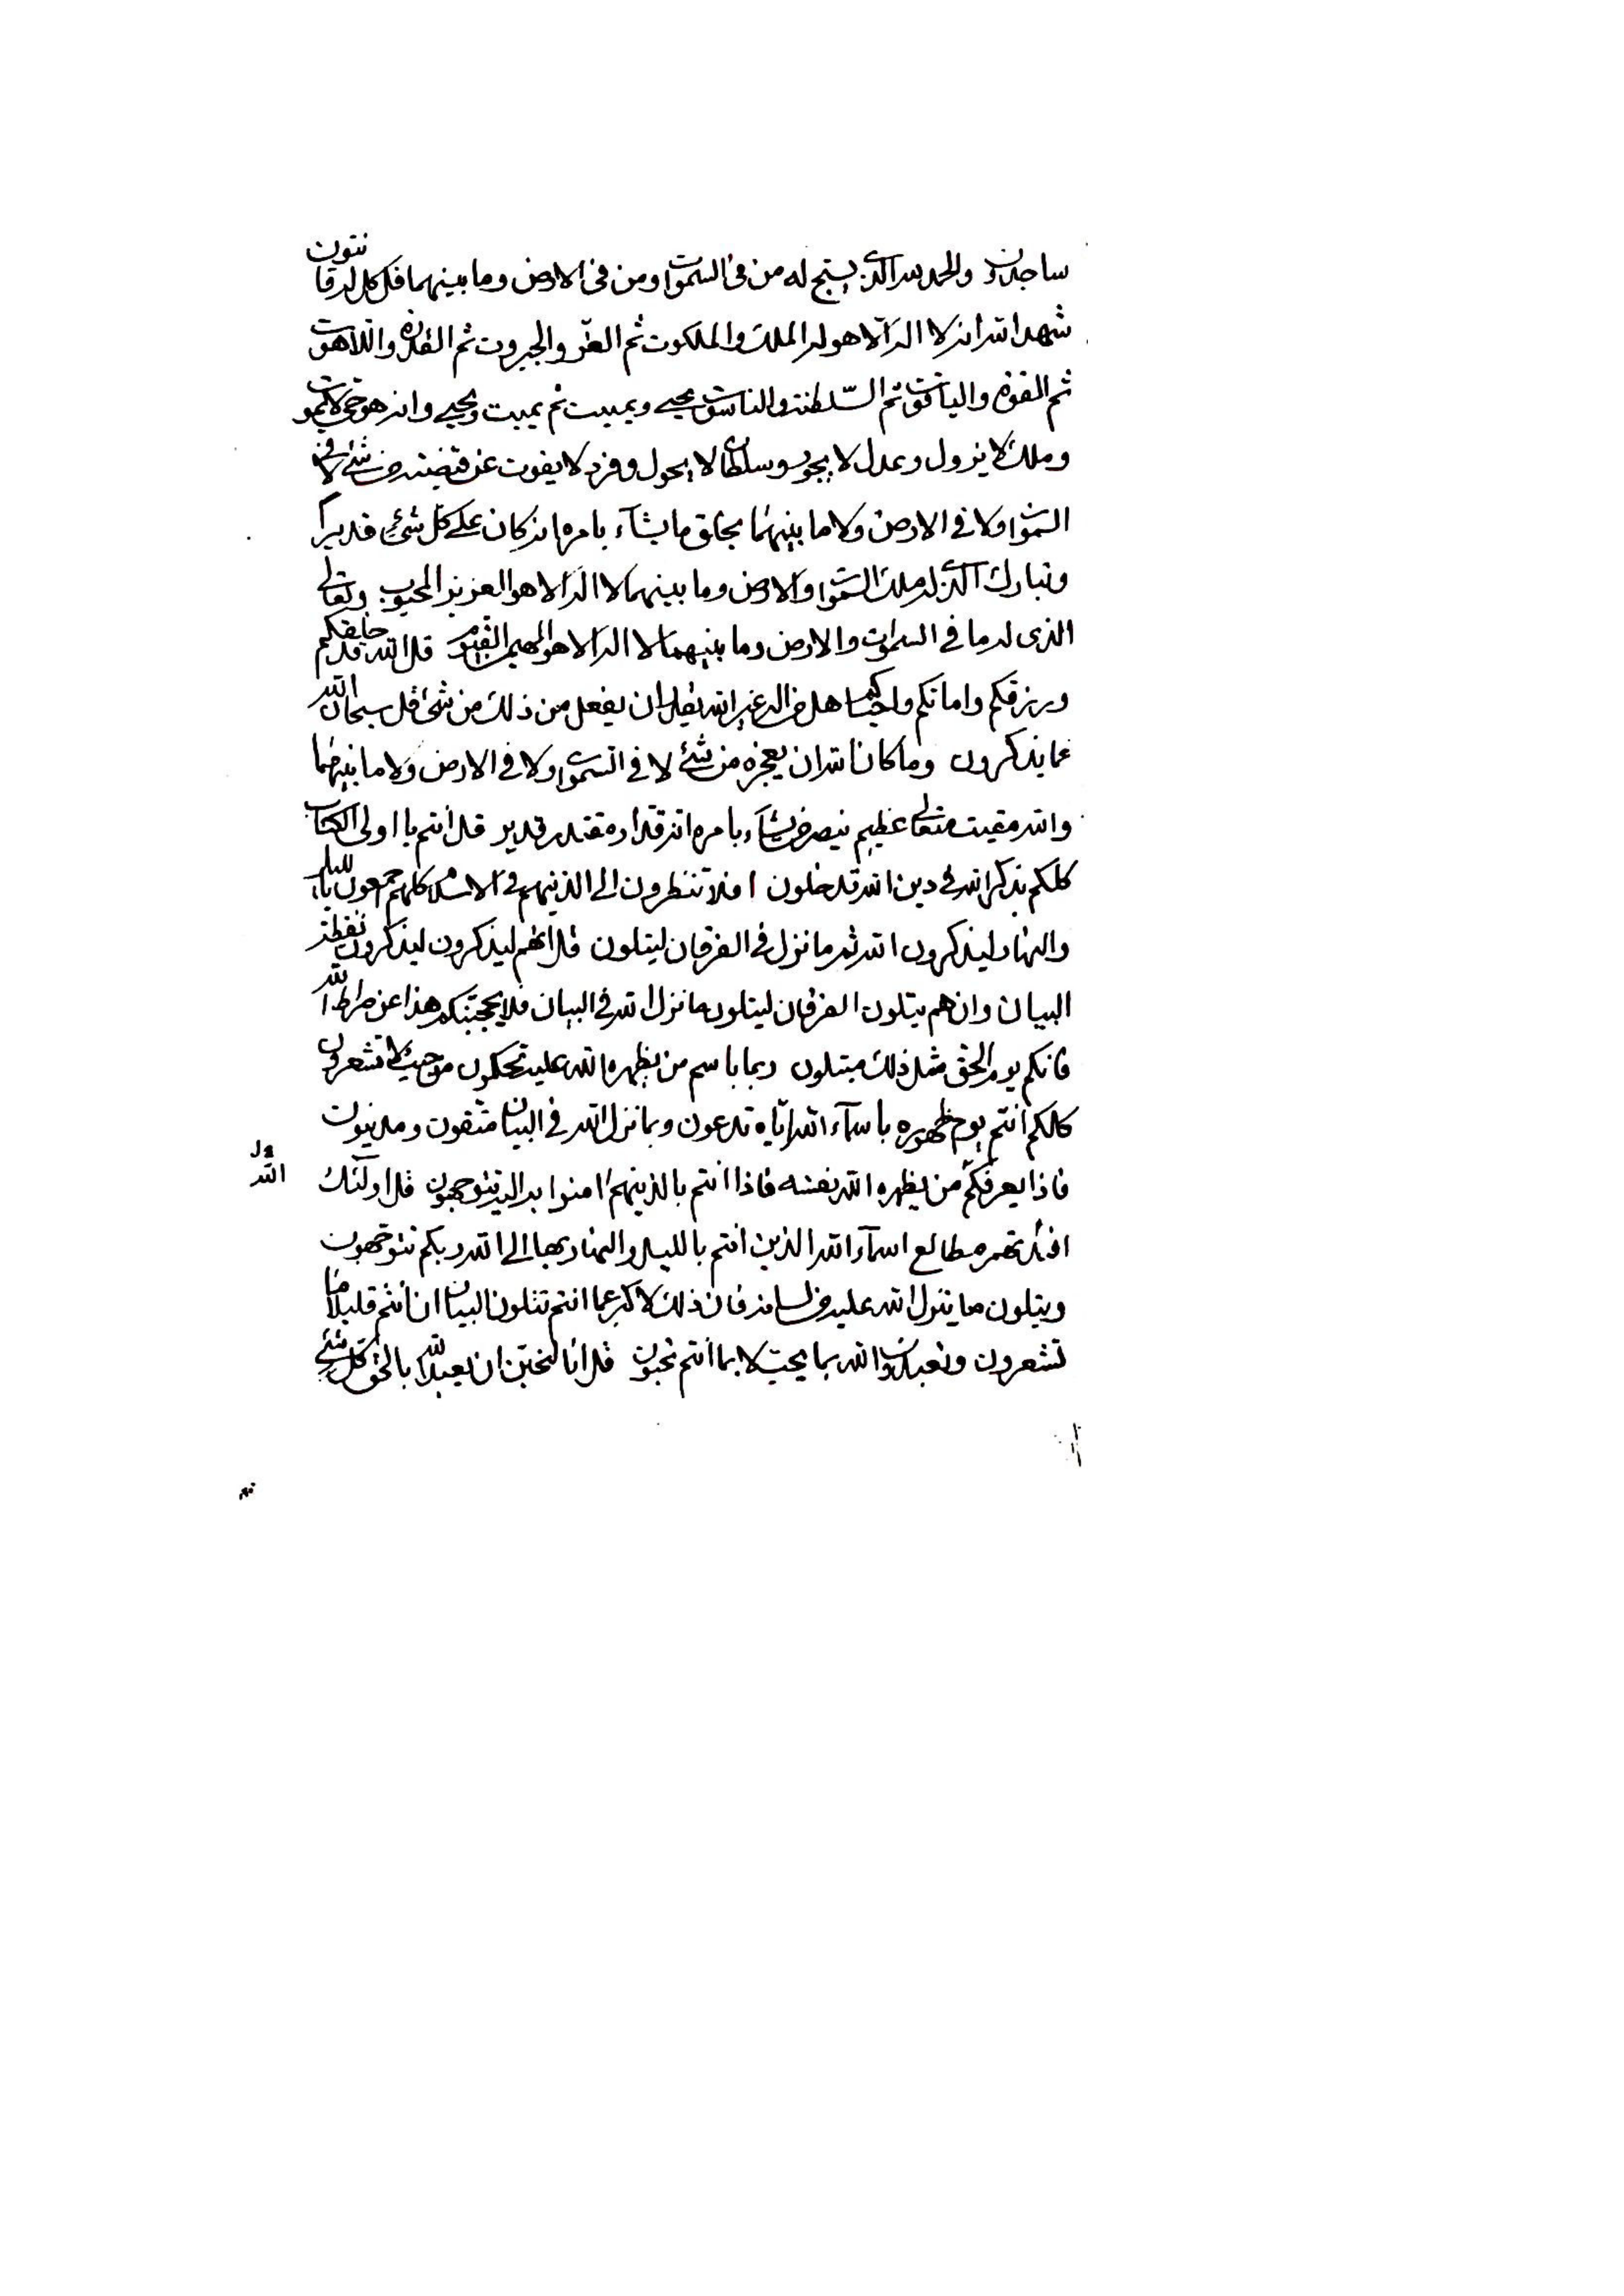 ساجدون والحمد لله الذی یسبح له من فی السموات ومن فی الارض وما بینهما قل کل له قانتون
شهد الله انه لا اله الا هو له الملک والملکوت ثم العز والجبروت ثم القدرة واللاهوت
ثم القوة والیاقوت ثم السلطنة والناسوت یحیی ویمیت ثم یمیت ویحیی وانه هو حی لا یموت
وملک لا یزول وعدل لا یجور وسلطان لا یحول وفرد لا یفوت عن قبضته من شیء لا فی
السموات ولا فی الارض ولا ما بینهما یخلق ما یشآء بامره انه کان علی کل شیء قدیرا
وتبارک الذی له ملک السموات والارض وما بینهما لا اله الا هو العزیز المحبوب وتعالی
الذی له ما فی السموات والارض وما بینهما لا اله الا هو المهیمن القیوم قل الله قد خلقکم
ورزقکم واماتکم واحیاکم هل من اله غیر الله یقدر ان یفعل من ذلک من شیء قل سبحان الله
عما یذکرون وما کان الله ان یعجزه من شیء لا فی السموات ولا فی الارض ولا ما بینهما
والله مقیت متعالی عظیم ینصر من یشآء بامره انه قداد مقتدر قدیر قل انتم یا اولی الکتاب
کلکم بذکر الله فی دین الله تدخلون افلا تنظرون الی الذینهم فی الاسلام کلهم جمعون باللیل
والنهار لیذکرون الله ثم ما نزل فی الفرقان لیتلون قل انهم لیذکرون لیذکرون نقطة
البیان وان هم یتلون الفرقان لیتلون ما نزل الله فی البیان فلا یحجبنکم هذا عن صراط الله
فانکم یوم الحق مثل ذلک مبتلون ربما باسم من یظهره الله علیه تحکمون من حیث لا تشعرون
کلکم انتم یوم ظهوره باسمآء الله ایاه تدعون وبما نزل الله فی البیان متقون ومدینون
فاذا یعرفکم من یظهره الله نفسه فاذا انتم بالذینهم امنوا به الیه تتوجهون قل اولئک
ول الله
افئدتهم مطالع اسمآء الله الذین انتم باللیل والنهار بها الی الله ربکم تتوجهون
ویتلون ما ینزل الله علیه من لسانه فان ذلک لاکبر عما انتم تتلون البیان ان انتم قلیلا ما
تشعرون وتعبدون الله بما یحب لا بما انتم تحبون قل انا لنحبن ان یعبد الله بالحق کل شیء